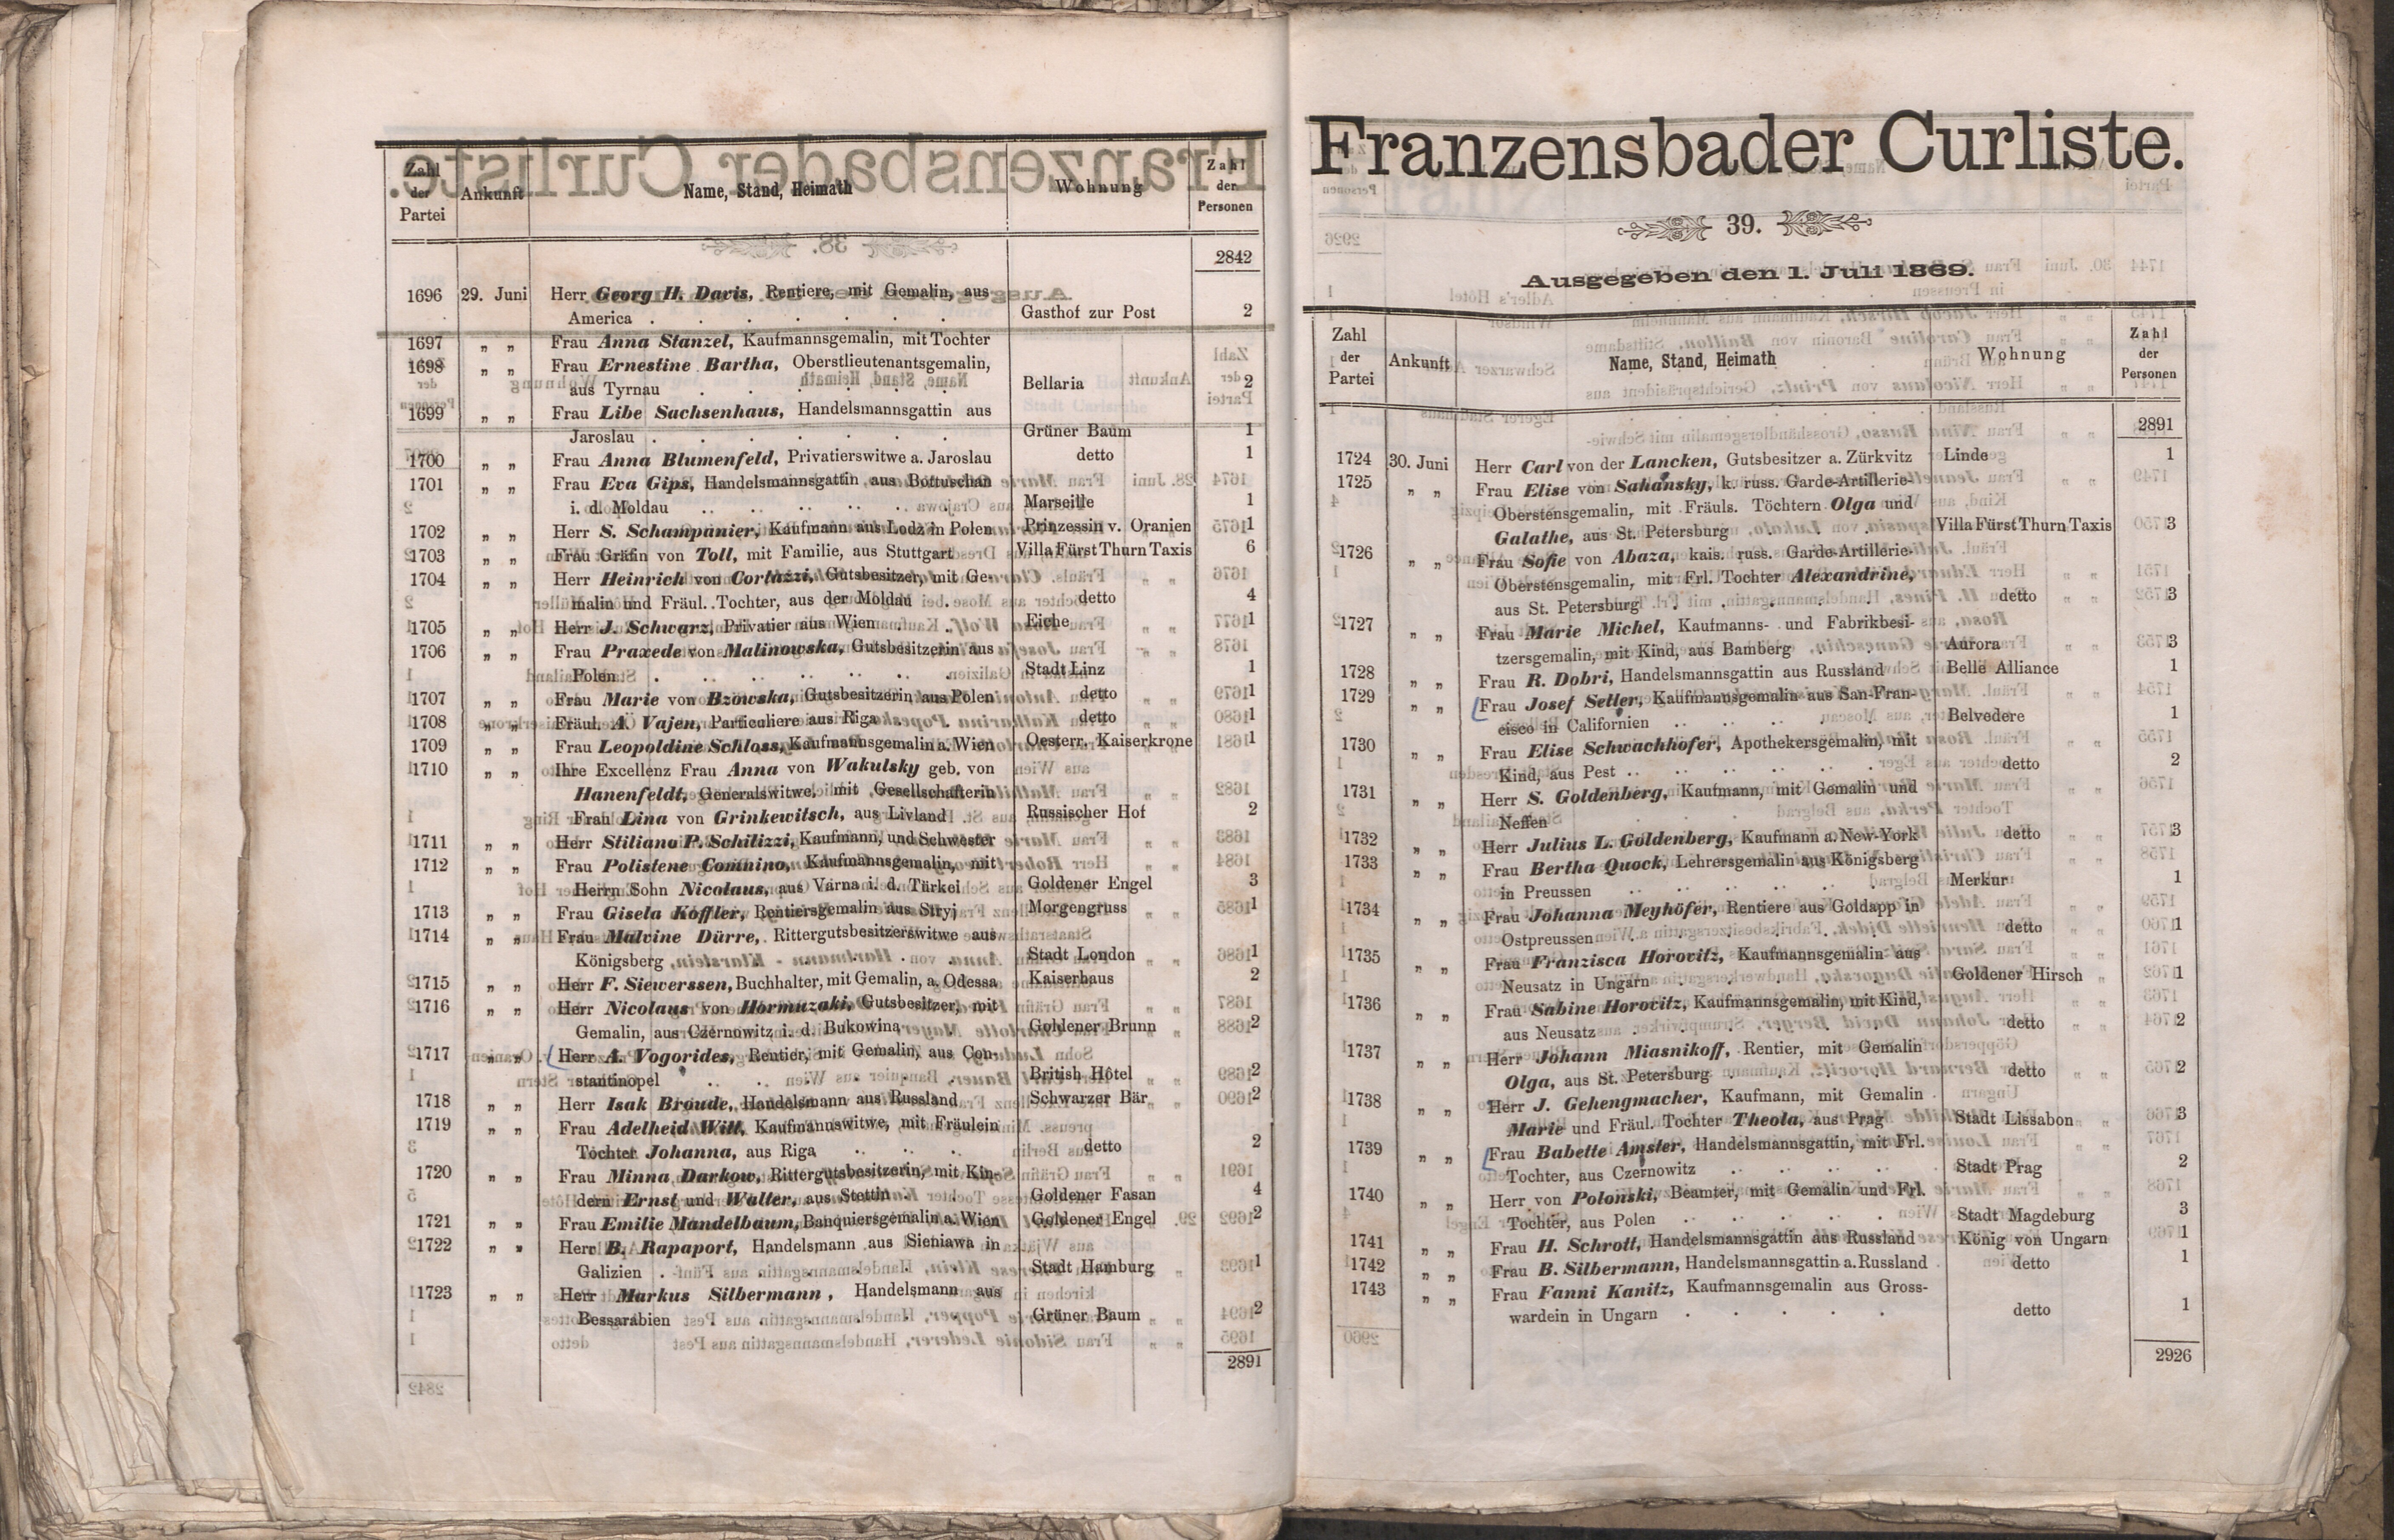 Zahl der Partei Ankunft Name, Stand, Heimath Wohnung Zahl der Personen
2842
1696 29. Juni Herr Georg H. Davis, Rentiere, mit Gemalin, aus
America . . . . . . . Gasthof zur Post 2
1697 „ „ Frau Anna Stanzel, Kaufmannsgemalin, mit Tochter
1698 „ „ Frau Ernestine Bartha, Oberstlieutenantsgemalin,
aus Tyrnau . . . . . . Bellaria 2
1699 „ „ Frau Libe Sachsenhaus, Handelsmannsgattin aus
Jaroslau . . . . . . . Grüner Baum 1
1700 „ „ Frau Anna Blumenfeld, Privatierswitwe a. Jaroslau detto 1
1701 „ „ Frau Eva Gips, Handelsmannsgattin aus Bottuschan
i. d. Moldau . . . . . . Marseille 1
1702 „ „ Herr S. Schampanier, Kaufmann aus Lodz in Polen Prinzessin v. Oranien 1
1703 „ „ Frau Gräfin von Toll, mit Familie, aus Stuttgart Villa Fürst Thurn Taxis 6
1704 „ „ Herr Heinrich von Cortazzi, Gutsbesitzer, mit Ge-
malin und Fräul. Tochter, aus der Moldau . detto 4
1705 „ „ Herr J. Schwarz, Privatier aus Wien . Eiche 1
1706 „ „ Frau Praxede von Malinowska, Gutsbesitzerin aus
Polen . . . . . . . Stadt Linz 1
1707 „ „ Frau Marie von Bzowska, Gutsbesitzerin aus Polen detto 1
1708 „ „ Fräul. A. Vajen, Particuliere aus Riga . detto 1
1709 „ „ Frau Leopoldine Schloss, Kaufmannsgemalin a. Wien Oesterr. Kaiserkrone 1
1710 „ „ Ihre Excellenz Frau Anna von Wakulsky geb. von
Hanenfeldt, Generalswitwe, mit Gesellschafterin
Frau Lina von Grinkewitsch, aus Livland . Russischer Hof 2
1711 „ „ Herr Stiliano P. Schilizzi, Kaufmann, und Schwester
1712 „ „ Frau Polistene Comnino, Kaufmannsgemalin, mit
Herrn Sohn Nicolaus, aus Varna i. d. Türkei Goldener Engel 3
1713 „ „ Frau Gisela Koffler, Rentiersgemalin aus Stryj Morgengruss 1
1714 „ „ Frau Malvine Dürre, Rittergutsbesitzerswitwe aus
Königsberg . . . . . . Stadt London 1
1715 „ „ Herr F. Siewerssen, Buchhalter, mit Gemalin, a. Odessa Kaiserhaus 2
1716 „ „ Herr Nicolaus von Hormuzaki, Gutsbesitzer, mit
Gemalin, aus Czernowitz i. d. Bukowina Goldener Brunn 2
1717 „ „ Herr A. Vogorides, Rentier, mit Gemalin, aus Con-
stantinopel . . . . . . British Hôtel 2
1718 „ „ Herr Isak Broude, Handelsmann aus Russland Schwarzer Bär 2
1719 „ „ Frau Adelheid Witt, Kaufmannswitwe, mit Fräulein
Tochter Johanna, aus Riga . . . detto 2
1720 „ „ Frau Minna Darkow, Rittergutsbesitzerin, mit Kin-
dern Ernst und Walter, aus Stettin . . Goldener Fasan 4
1721 „ „ Frau Emilie Mandelbaum, Banquiersgemalin a. Wien Goldener Engel 2
1722 „ „ Herr B. Rapaport, Handelsmann aus Sieniawa in
Galizien . . . . . . . Stadt Hamburg 1
1723 „ „ Herr Markus Silbermann, Handelsmann aus
Bessarabien . . . . . . Grüner Baum 2
2891
Franzensbader Curliste.
39.
Ausgegeben den 1. Juli 1869.
Zahl der Partei Ankunft Name, Stand, Heimath Wohnung Zahl der Personen
2891
1724 30. Juni Herr Carl von der Lancken, Gutsbesitzer a. Zürkvitz Linde 1
1725 „ „ Frau Elise von Sahansky, k. russ. Garde-Artillerie-
Oberstensgemalin, mit Fräuls. Töchtern Olga und
Galathe, aus St. Petersburg . . . . Villa Fürst Thurn Taxis 3
1726 „ „ Frau Sofie von Abaza, kais. russ. Garde-Artillerie-
Oberstensgemalin, mit Frl. Tochter Alexandrine,
aus St. Petersburg . . . . . detto 3
1727 „ „ Frau Marie Michel, Kaufmanns- und Fabrikbesi-
tzersgemalin, mit Kind, aus Bamberg . . Aurora 3
1728 „ „ Frau R. Dobri, Handelsmannsgattin aus Russland Belle Alliance 1
1729 „ „ Frau Josef Seller, Kaufmannsgemalin aus San-Fran-
cisco in Californien . . . . . Belvedere 1
1730 „ „ Frau Elise Schwachhofer, Apothekersgemalin, mit
Kind, aus Pest . . . . . . detto 2
1731 „ „ Herr S. Goldenberg, Kaufmann, mit Gemalin und
Neffen
1732 „ „ Herr Julius L. Goldenberg, Kaufmann a. New-York detto 3
1733 „ „ Frau Bertha Quock, Lehrersgemalin aus Königsberg
in Preussen . . . . . . Merkur 1
1734 „ „ Frau Johanna Meyhöfer, Rentiere aus Goldapp in
Ostpreussen . . . . . . detto 1
1735 „ „ Frau Franzisca Horovitz, Kaufmannsgemalin aus
Neusatz in Ungarn . . . . . Goldener Hirsch 1
1736 „ „ Frau Sabine Horovitz, Kaufmannsgemalin, mit Kind,
aus Neusatz . . . . . . detto 2
1737 „ „ Herr Johann Miasnikoff, Rentier, mit Gemalin
Olga, aus St. Petersburg . . . . detto 2
1738 „ „ Herr J. Gehengmacher, Kaufmann, mit Gemalin
Marie und Fräul. Tochter Theola, aus Prag Stadt Lissabon 3
1739 „ „ Frau Babette Amster, Handelsmannsgattin, mit Frl.
Tochter, aus Czernowitz . . . . Stadt Prag 2
1740 „ „ Herr von Polonski, Beamter, mit Gemalin und Frl.
Tochter, aus Polen . . . . . Stadt Magdeburg 3
1741 „ „ Frau H. Schrott, Handelsmannsgattin aus Russland König von Ungarn 1
1742 „ „ Frau B. Silbermann, Handelsmannsgattin a. Russland detto 1
1743 „ „ Frau Fanni Kanitz, Kaufmannsgemalin aus Gross-
wardein in Ungarn . . . . . detto 1
2926